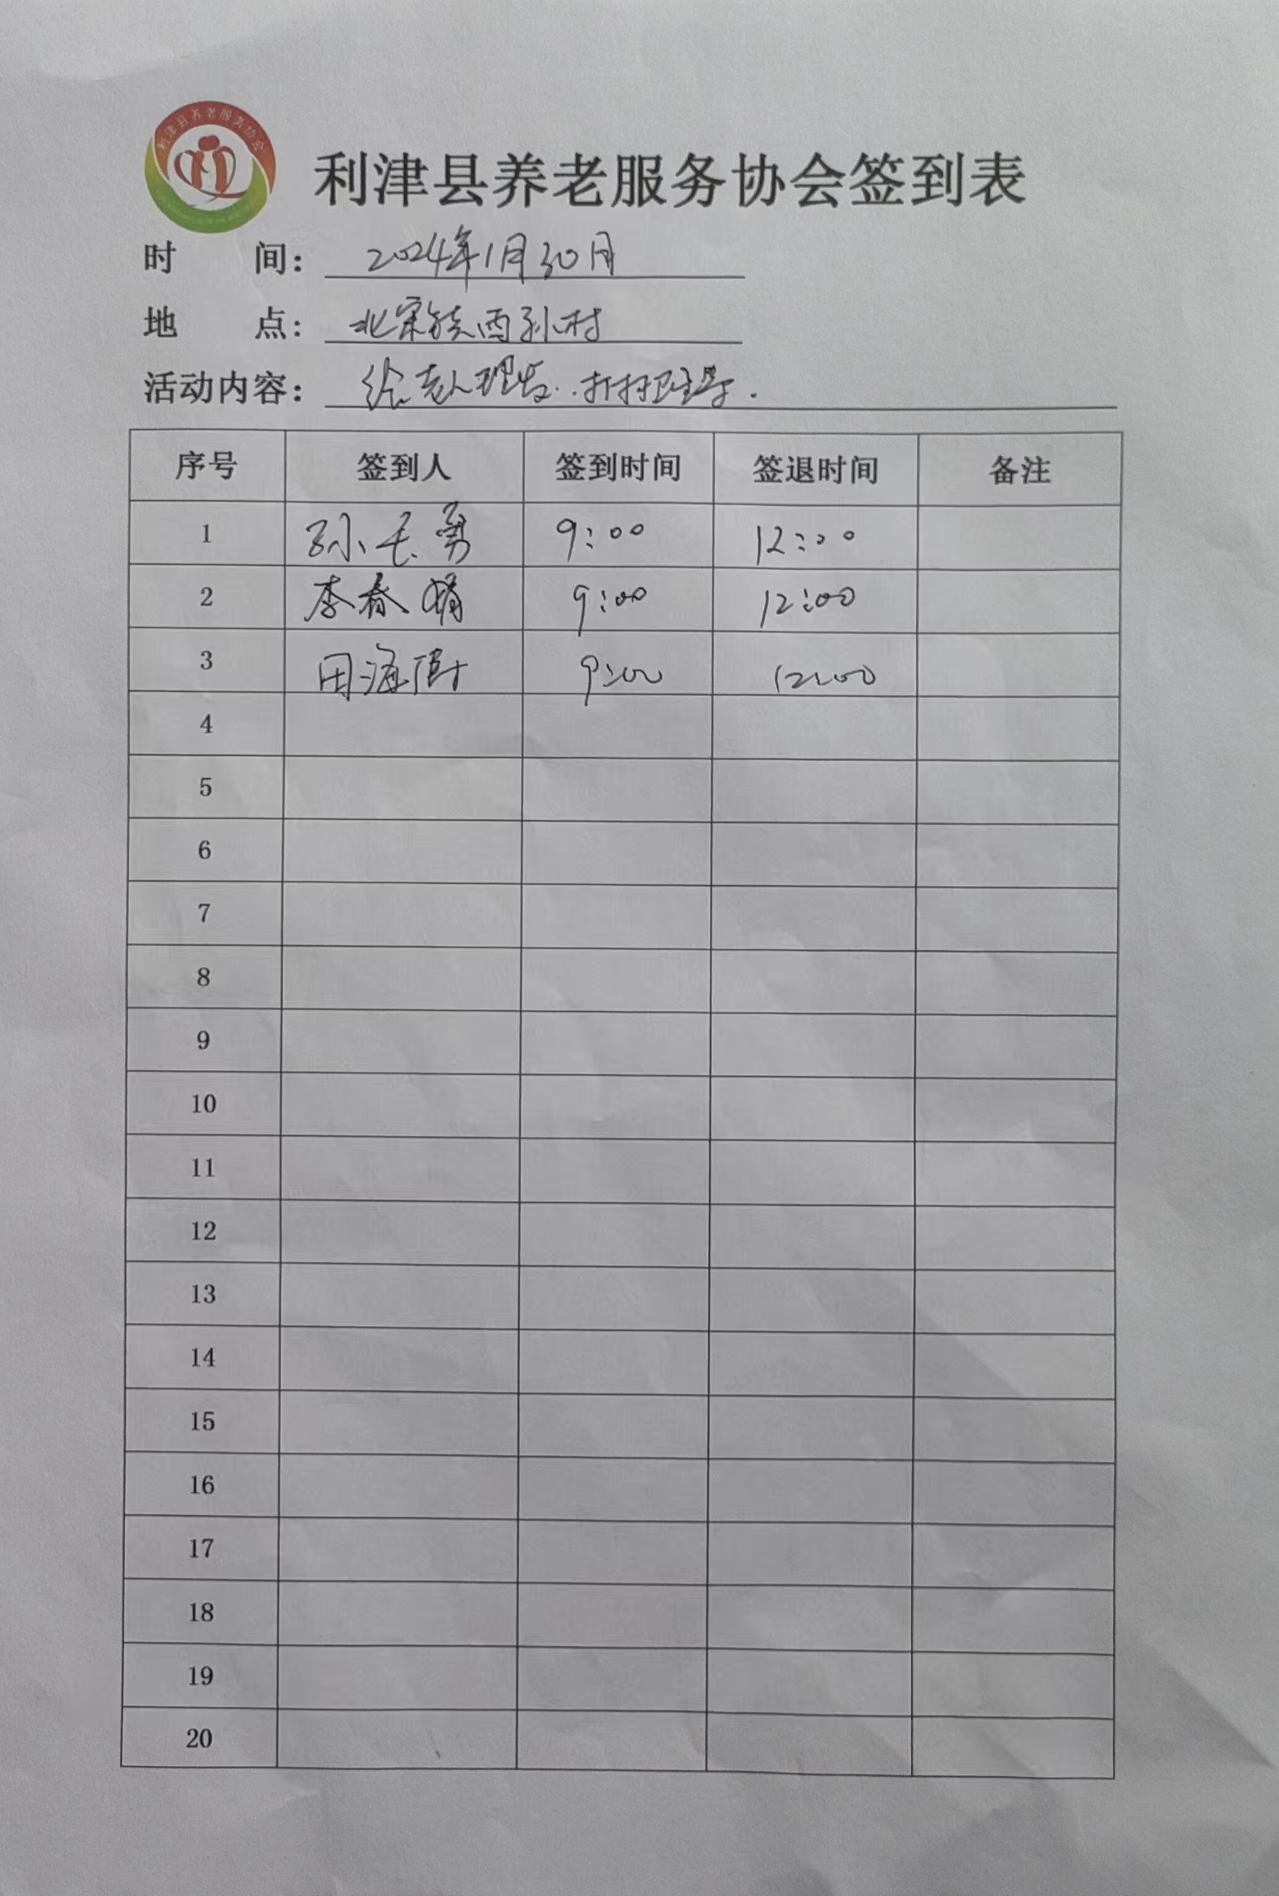 利津县养老服务协会
利津县养老服务协会签到表
时 间: 2024年1月30日
地 点: 北宋镇西孙村
活动内容: 给老人理发..打扫卫生等.
序号 签到人 签到时间 签退时间 备注
1 孙长勇 9:00 12:00
2 李春娟 9:00 12:00
3 海 9:00 12:00
4
5
6
7
8
9
10
11
12
13
14
15
16
17
18
19
20